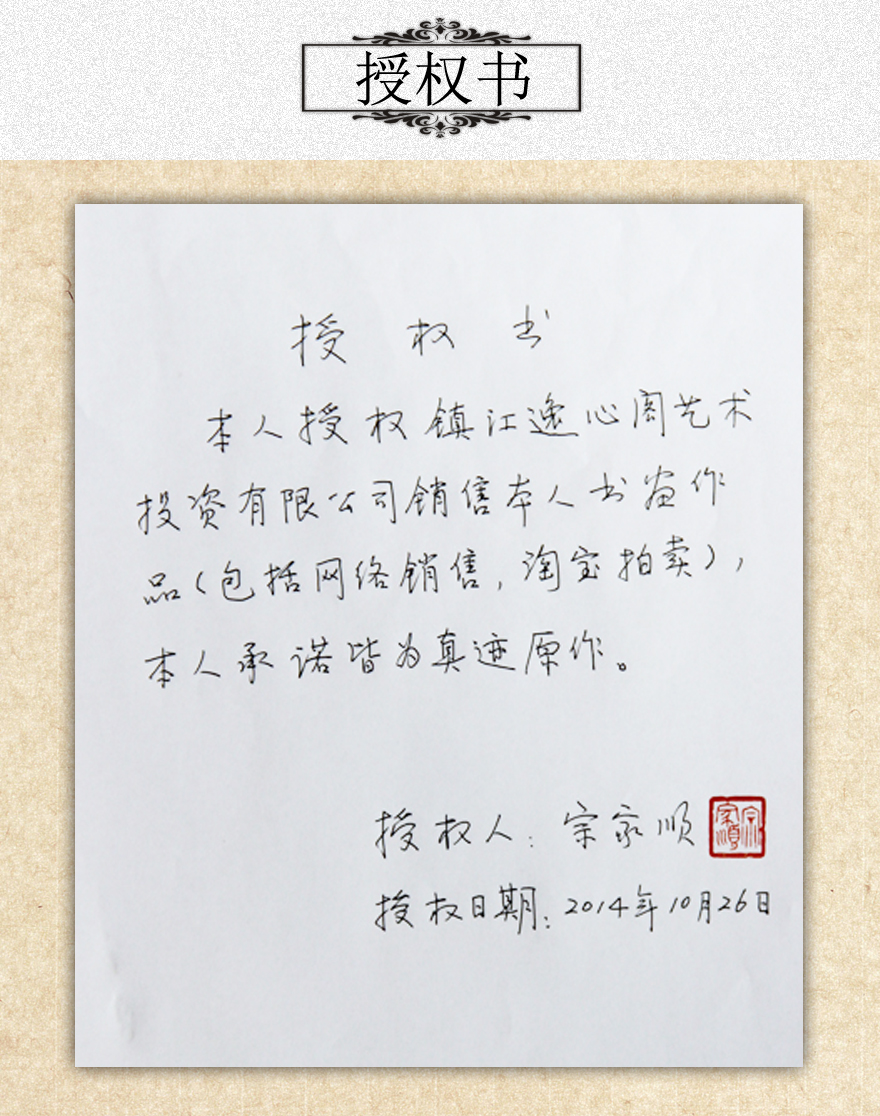 授权书
授权书
本人授权镇江逸心阁艺术
投资有限公司销售本人书画作
品(包括网络销售,淘宝拍卖),
本人承诺皆为真迹原作。
授权人:宗家顺
宗家順
授权日期:2014年10月26日